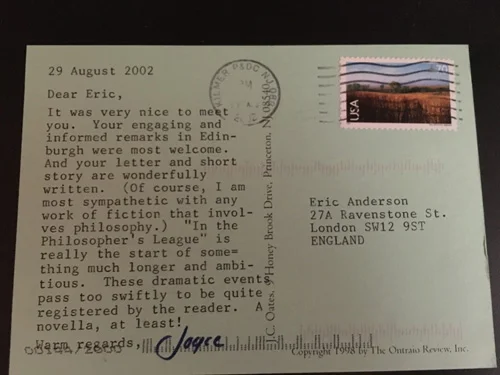 29 August 2002
Dear Eric,
It was very nice to meet
you. Your engaging and
informed remarks in Edin-
burgh were most welcome.
And your letter and short
story are wonderfully
written. (Of course, I am
most sympathetic with any
work of fiction that invol-
ves philosophy.) "In the
Philosopher's League" is
really the start of some=
thing much longer and ambi-
tious. These dramatic events
pass too swiftly to be quite
registered by the reader. A
novella, at least!
Warm regards,
Joyce
J.C. Oates, 9 Honey Brook Drive, Princeton, NJ 08540
KILMER P&DC NJ
USA
Eric Anderson
27A Ravenstone St.
London SW12 9ST
ENGLAND
Copyright 1998 by The Ontraio Review, Inc.